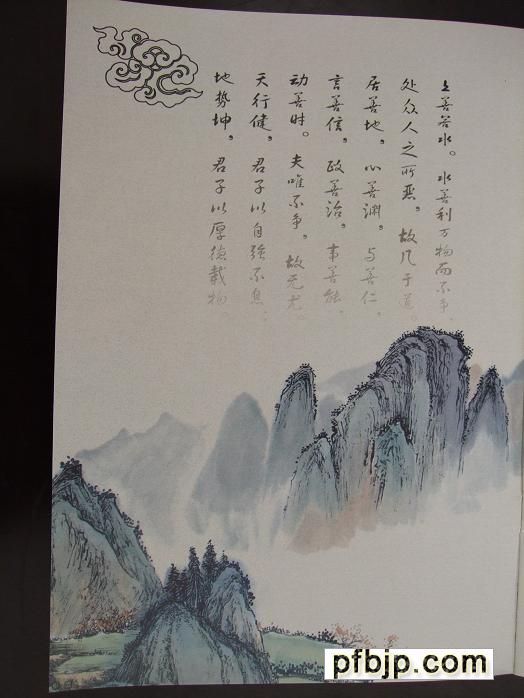 上善若水。水善利万物而不争，
处众人之所恶，故几于道。
居善地，心善渊，与善仁，
言善信，政善治，事善能，
动善时。夫唯不争，故无尤。
天行健，君子以自强不息，
地势坤，君子以厚德载物。
pfbjp.com